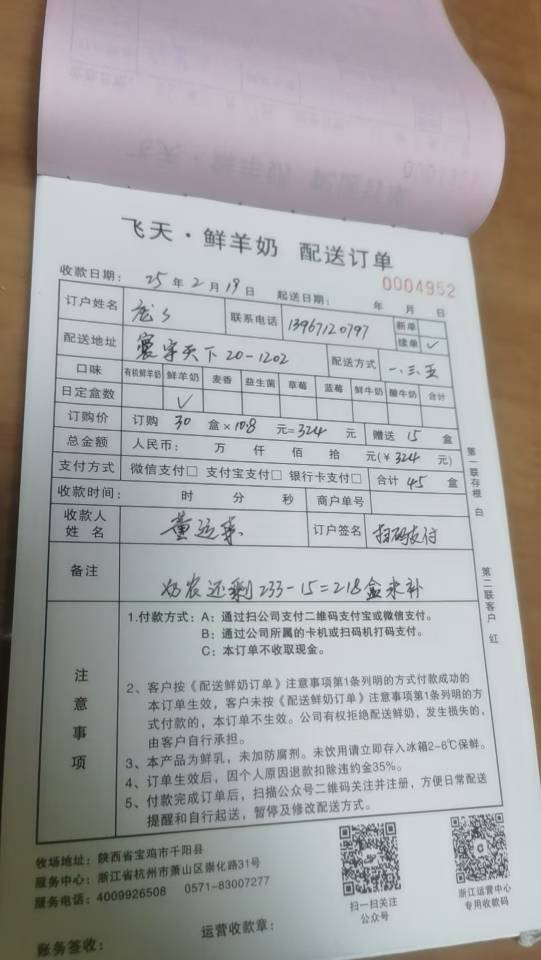 飞天·鲜羊奶 配送订单
收款日期： 25 年 2 月 19 日 起送日期： 年 月 日 0004952
订户姓名 联系电话 13967120797 新单
续单 ✓
配送地址 寰宇天下20-1202 配送方式 一.三.五
口味 有机鲜羊奶 鲜羊奶 麦香 益生菌 草莓 蓝莓 鲜牛奶 酸牛奶 合计
日定盒数 ✓
订购价 订购 30 盒×10.8 元=324 元 赠送 15 盒
总金额 人民币： 万 仟 佰 拾 元(¥ 324 元)
支付方式 微信支付□ 支付宝支付□ 银行卡支付□ 合计 45 盒
收款时间： 时 分 秒 商户单号
收款人姓名 董运来 订户签名 扫码支付
备注 奶农还剩233-15=218盒未补
第一联存根 白
第二联客户 红
注意事项
1.付款方式：A：通过扫公司支付二维码支付宝或微信支付。
B：通过公司所属的卡机或扫码机打码支付。
C：本订单不收取现金。
2、客户按《配送鲜奶订单》注意事项第1条列明的方式付款成功的
本订单生效，客户未按《配送鲜奶订单》注意事项第1条列明的方
式付款的，本订单不生效。公司有权拒绝配送鲜奶，发生损失的，
由客户自行承担。
3、本产品为鲜乳，未加防腐剂。未饮用请立即存入冰箱2-6℃保鲜。
4、订单生效后，因个人原因退款扣除违约金35%。
5、付款完成订单后，扫描公众号二维码关注并注册，方便日常配送
提醒和自行起送，暂停及修改配送方式。
牧场地址：陕西省宝鸡市千阳县
服务中心：浙江省杭州市萧山区崇化路31号
服务电话：4009926508 0571-83007277
扫一扫关注
公众号
浙江运营中心
专用收款码
运营收款章：
账务签收：